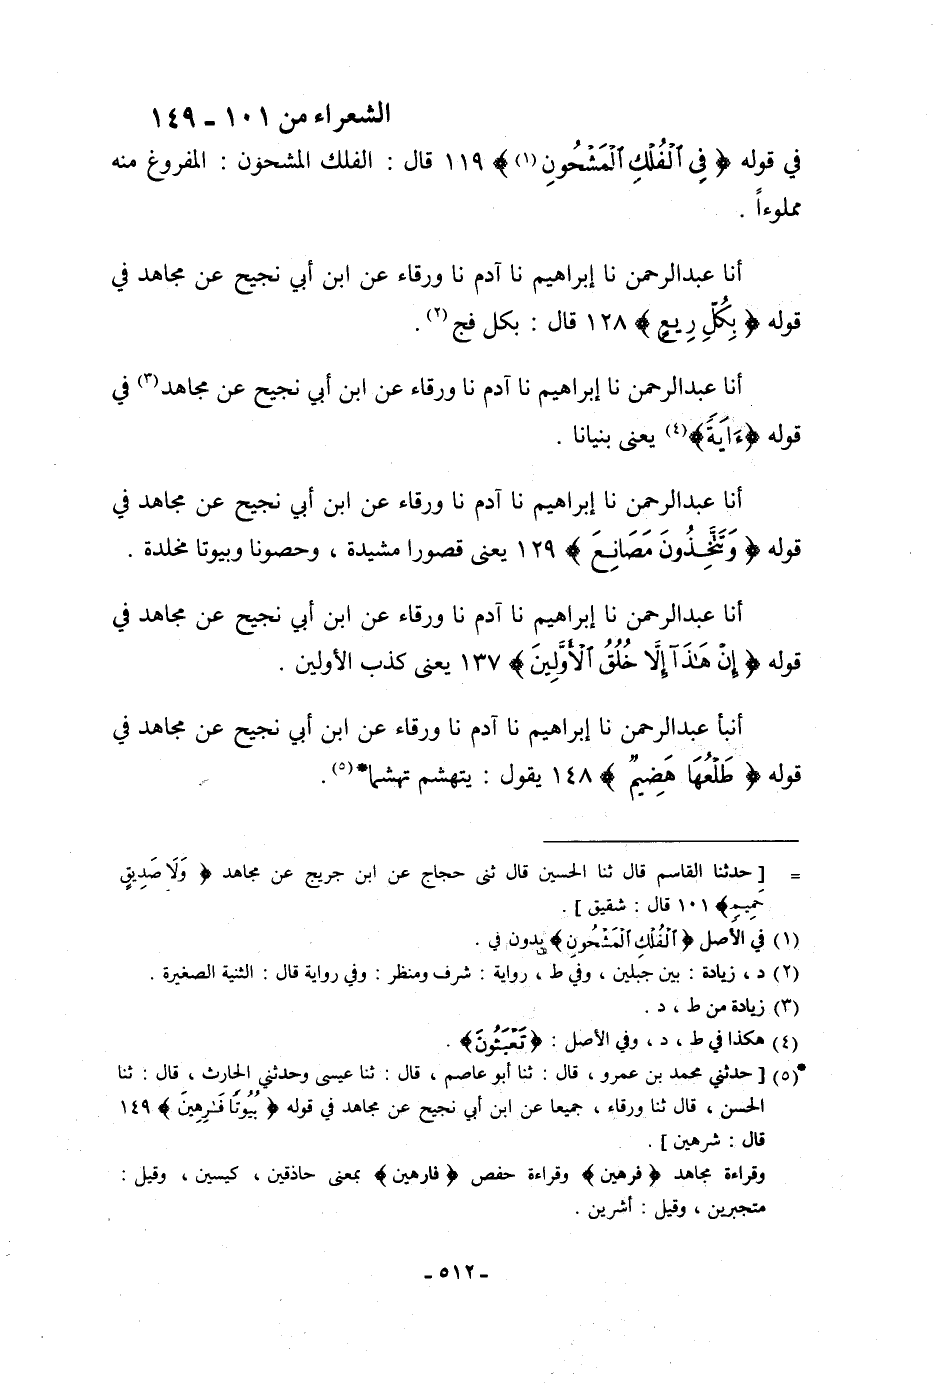 الشعراء من ١٠١ - ١٤٩
في قوله ﴿ فِى ٱلْفُلْكِ ٱلْمَشْحُونِ (١) ﴾ ١١٩ قال : الفلك المشحون : المفروغ منه
مملوءاً .
أنا عبدالرحمن نا إبراهيم نا آدم نا ورقاء عن ابن أبي نجيح عن مجاهد في
قوله ﴿ بِكُلِّ رِيعٍ ﴾ ١٢٨ قال : بكل فج (٢) .
أنا عبدالرحمن نا إبراهيم نا آدم نا ورقاء عن ابن أبي نجيح عن مجاهد (٣) في
قوله ﴿ءَايَةً﴾ (٤) يعنى بنيانا .
أنا عبدالرحمن نا إبراهيم نا آدم نا ورقاء عن ابن أبي نجيح عن مجاهد في
قوله ﴿ وَتَتَّخِذُونَ مَصَانِعَ ﴾ ١٢٩ يعنى قصورا مشيدة ، وحصونا وبيوتا مخلدة .
أنا عبدالرحمن نا إبراهيم نا آدم نا ورقاء عن ابن أبي نجيح عن مجاهد في
قوله ﴿ إِنْ هَٰذَآ إِلَّا خُلُقُ ٱلْأَوَّلِينَ ﴾ ١٣٧ يعنى كذب الأولين .
أنبأ عبدالرحمن نا إبراهيم نا آدم نا ورقاء عن ابن أبي نجيح عن مجاهد في
قوله ﴿ طَلْعُهَا هَضِيمٌ ﴾ ١٤٨ يقول : يتهشم تهشما* (٥) .
= [ حدثنا القاسم قال ثنا الحسين قال ثنى حجاج عن ابن جريج عن مجاهد ﴿ وَلَا صَدِيقٍ
حَمِيمٍ ﴾ ١٠١ قال : شقيق ] .
(١) في الأصل ﴿ ٱلْفُلْكِ ٱلْمَشْحُونِ ﴾ بدون في .
(٢) د ، زيادة : بين جبلين ، وفي ط ، رواية : شرف ومنظر : وفي رواية قال : الثنية الصغيرة .
(٣) زيادة من ط ، د .
(٤) هكذا في ط ، د ، وفي الأصل : ﴿ تَعْبَثُونَ ﴾ .
*(٥) [ حدثني محمد بن عمرو ، قال : ثنا أبو عاصم ، قال : ثنا عيسى وحدثني الحارث ، قال : ثنا
الحسن ، قال ثنا ورقاء ، جميعا عن ابن أبي نجيح عن مجاهد في قوله ﴿ بُيُوتًا فَٰرِهِينَ ﴾ ١٤٩
قال : شرهين ] .
وقراءة مجاهد ﴿ فرهين ﴾ وقراءة حفص ﴿ فارهين ﴾ بمعنى حاذقين ، كيسين ، وقيل :
متجبرين ، وقيل : أشرين .
- ٥١٢ -